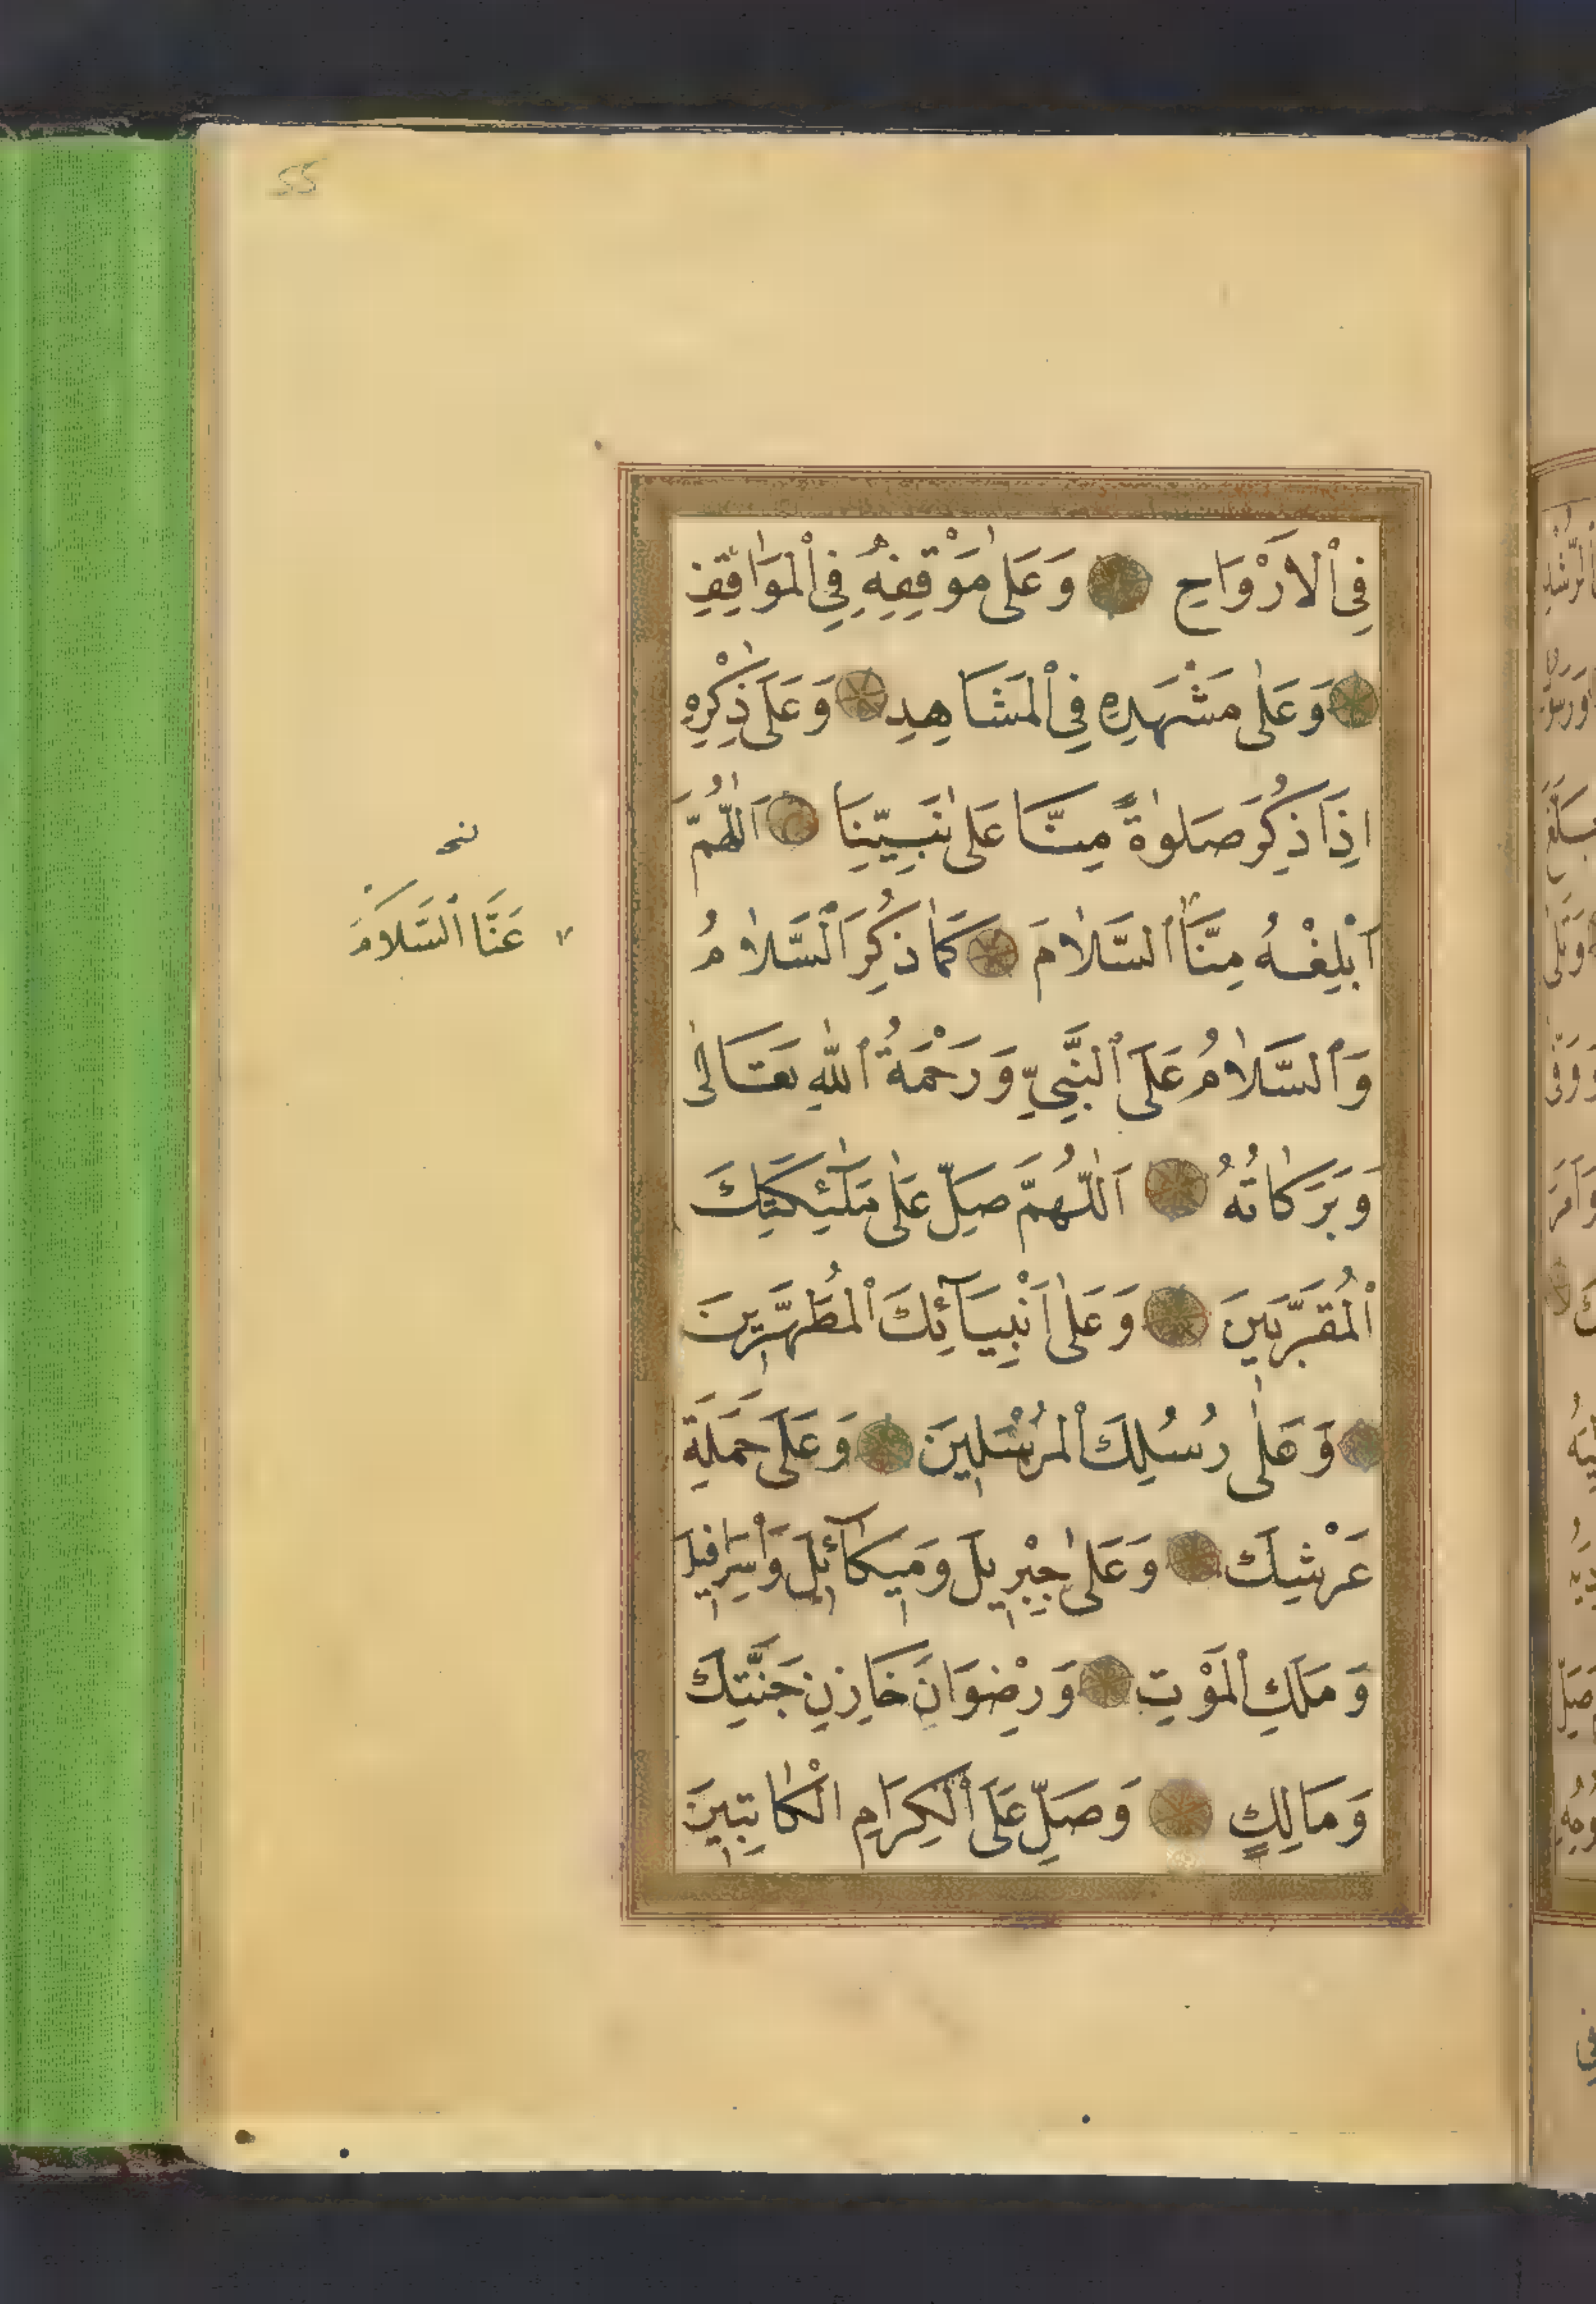 55
فِي ٱلْاَرْوَاحِ وَعَلٰى مَوْقِفِهٖ فِي ٱلْمَوَاقِفِ
وَعَلٰى مَشْهَدِهٖ فِي ٱلْمَشَاهِدِ وَعَلٰى ذِكْرِهٖ
اِذَا ذُكِرَ صَلٰوةً مِنَّا عَلٰى نَبِيِّنَا اَللّٰهُمَّ
اَبْلِغْهُ مِنَّا ٱلسَّلَامَ كَمَا ذُكِرَ ٱلسَّلَامُ
نخـ
عَنَّا ٱلسَّلَامَ
وَٱلسَّلَامُ عَلَى ٱلنَّبِيِّ وَرَحْمَةُ ٱللّٰهِ تَعَالٰى
وَبَرَكَاتُهُ اَللّٰهُمَّ صَلِّ عَلٰى مَلٰٓئِكَتِكَ
ٱلْمُقَرَّبِينَ وَعَلٰى اَنْبِيَآئِكَ ٱلْمُطَهَّرِينَ
وَعَلٰى رُسُلِكَ ٱلْمُرْسَلِينَ وَعَلٰى حَمَلَةِ
عَرْشِكَ وَعَلٰى جِبْرِيلَ وَمِيكَآئِلَ وَاِسْرَافِيلَ
وَمَلَكِ ٱلْمَوْتِ وَرِضْوَانَ خَازِنِ جَنَّتِكَ
وَمَالِكٍ وَصَلِّ عَلَى ٱلْكِرَامِ الْكَاتِبِينَ